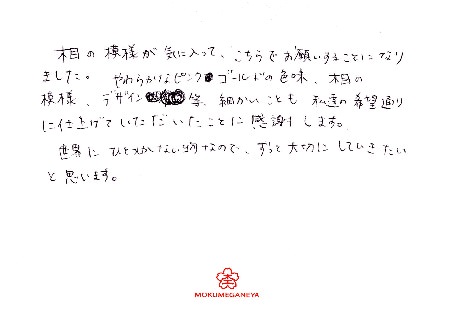 木目の模様が気に入って、こちらでお願いすることになり
ました。 やわらかなピンクゴールドの色味、木目の
模様、デザイン等、細かいことも私達の希望通り
に仕上げていただいたことに感謝します。
世界にひとつしかない物なので、ずっと大切にしていきたい
と思います。
MOKUMEGANEYA